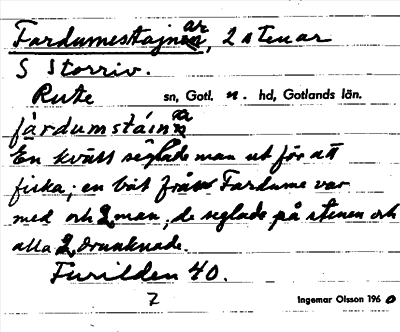 Fardumestajnar, 2 stenar
S Storriv.
Rute sn, Gotl. n. hd, Gotlands län.
fàrdumstáinar
En kväll seglade man ut för att
fiska; en båt från Fardume var
med och 2 man, de seglade på stenen och
alla 2 drunknade.
Furilden 40.
7
Ingemar Olsson 1960